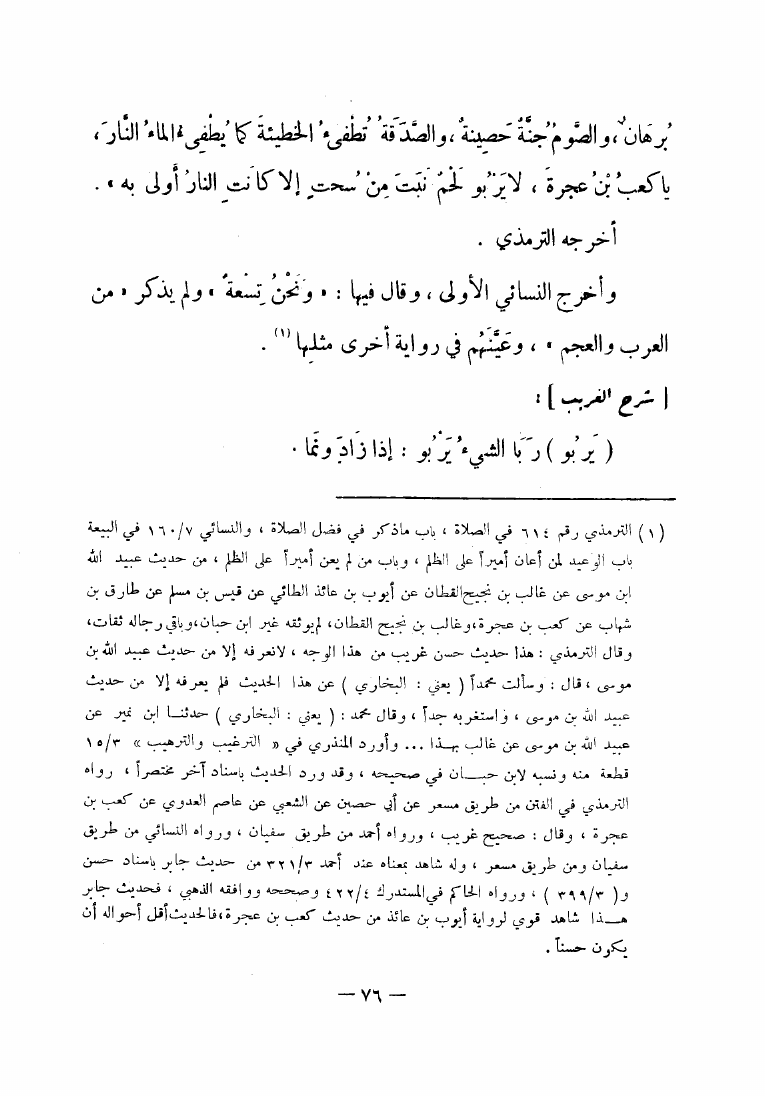 بُرهَانٌ، والصَّومُ جُنَّةٌ حَصِينةٌ، والصَّدَقَةُ تُطْفِىءُ الخطيئةَ كما يُطْفِىءُ الماءُ النَّارَ،
يا كعبُ بْنُ عجرةَ ، لا يَرْبُو لَحْمٌ نَبَتَ مِنْ سُحتٍ إلا كانَت النارُ أولى به » .
أخرجه الترمذي .
وأخرج النسائي الأولى ، وقال فيها : « ونَحْنُ تِسْعةٌ » ولم يذكر « من
العرب والعجم » ، وعَيَّنَهُم في رواية أخرى مثلِها (١) .
[ شرح الغريب ] :
( يَربُو ) رَبَا الشيءُ يَرْبُو : إذا زَادَ ونَمَا .
(١) الترمذي رقم ٦١٤ في الصلاة ، باب ماذكر في فضل الصلاة ، والنسائي ١٦٠/٧ في البيعة
باب الوعيد لمن أعان أميراً على الظلم ، وباب من لم يعن أميراً على الظلم ، من حديث عبيد الله
ابن موسى عن غالب بن نجيح القطان عن أيوب بن عائذ الطائي عن قيس بن مسلم عن طارق بن
شهاب عن كعب بن عجرة، وغالب بن نجيح القطان، لم يوثقه غير ابن حبان، وباقي رجاله ثقات،
وقال الترمذي : هذا حديث حسن غريب من هذا الوجه ، لانعرفه إلا من حديث عبيد الله بن
موسى ، قال : وسألت محمداً ( يعني : البخاري ) عن هذا الحديث فلم يعرفه إلا من حديث
عبيد الله بن موسى ، واستغربه جداً ، وقال محمد : ( يعني : البخاري ) حدثنا ابن نمير عن
عبيد الله بن موسى عن غالب بهذا ... وأورد المنذري في « الترغيب والترهيب » ١٥/٣
قطعة منه ونسبه لابن حبان في صحيحه ، وقد ورد الحديث باسناد آخر مختصراً ، رواه
الترمذي في الفتن من طريق مسعر عن أبي حصين عن الشعبي عن عاصم العدوي عن كعب بن
عجرة ، وقال : صحيح غريب ، ورواه أحمد من طريق سفيان ، ورواه النسائي من طريق
سفيان ومن طريق مسعر ، وله شاهد بمعناه عند أحمد ٣٢١/٣ من حديث جابر باسناد حسن
و( ٣٩٩/٣ ) ، ورواه الحاكم في المستدرك ٤٢٢/٤ وصححه ووافقه الذهبي ، فحديث جابر
هذا شاهد قوي لرواية أيوب بن عائذ من حديث كعب بن عجرة، فالحديث أقل أحواله أن
يكون حسناً .
— ٧٦ —